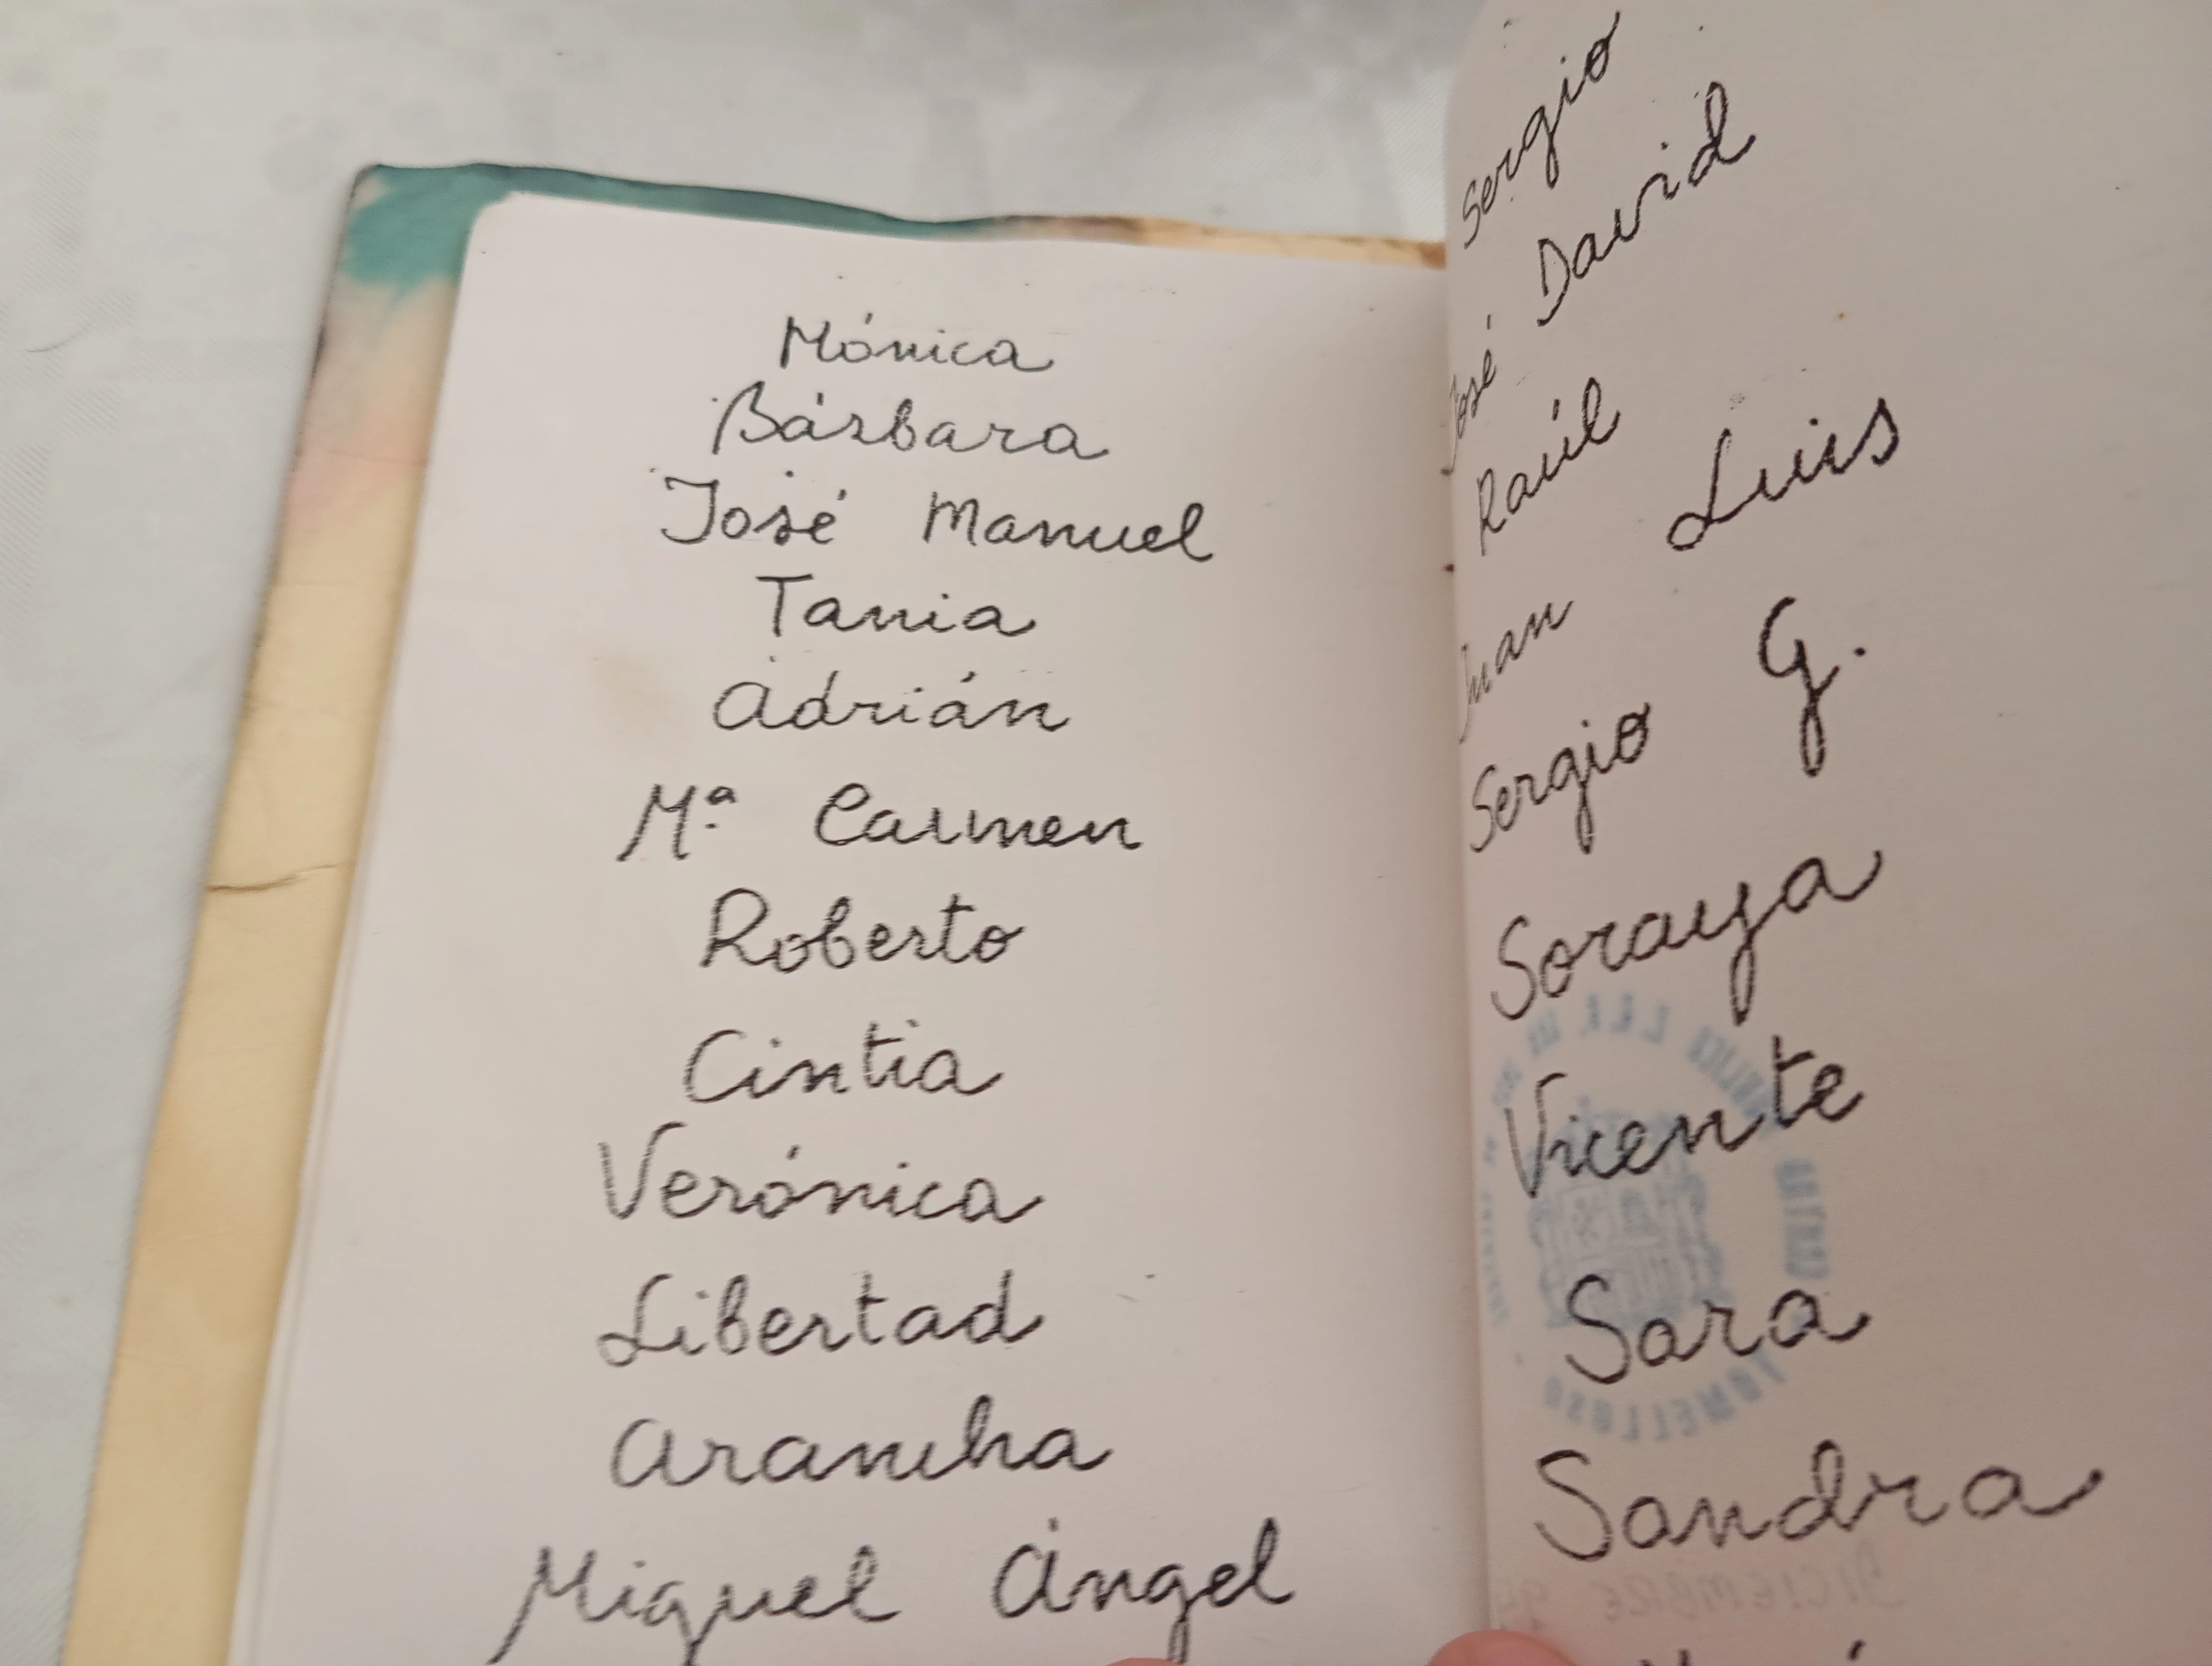 Mónica
Bárbara
José Manuel
Tania
Adrián
Mª Carmen
Roberto
Cintia
Verónica
Libertad
Arancha
Miguel Ángel
Sergio
José David
Raúl
Juan Luis
Sergio G.
Soraya
Vicente
Sara
Sandra
TOMELLOSO
DICIEMBRE 94